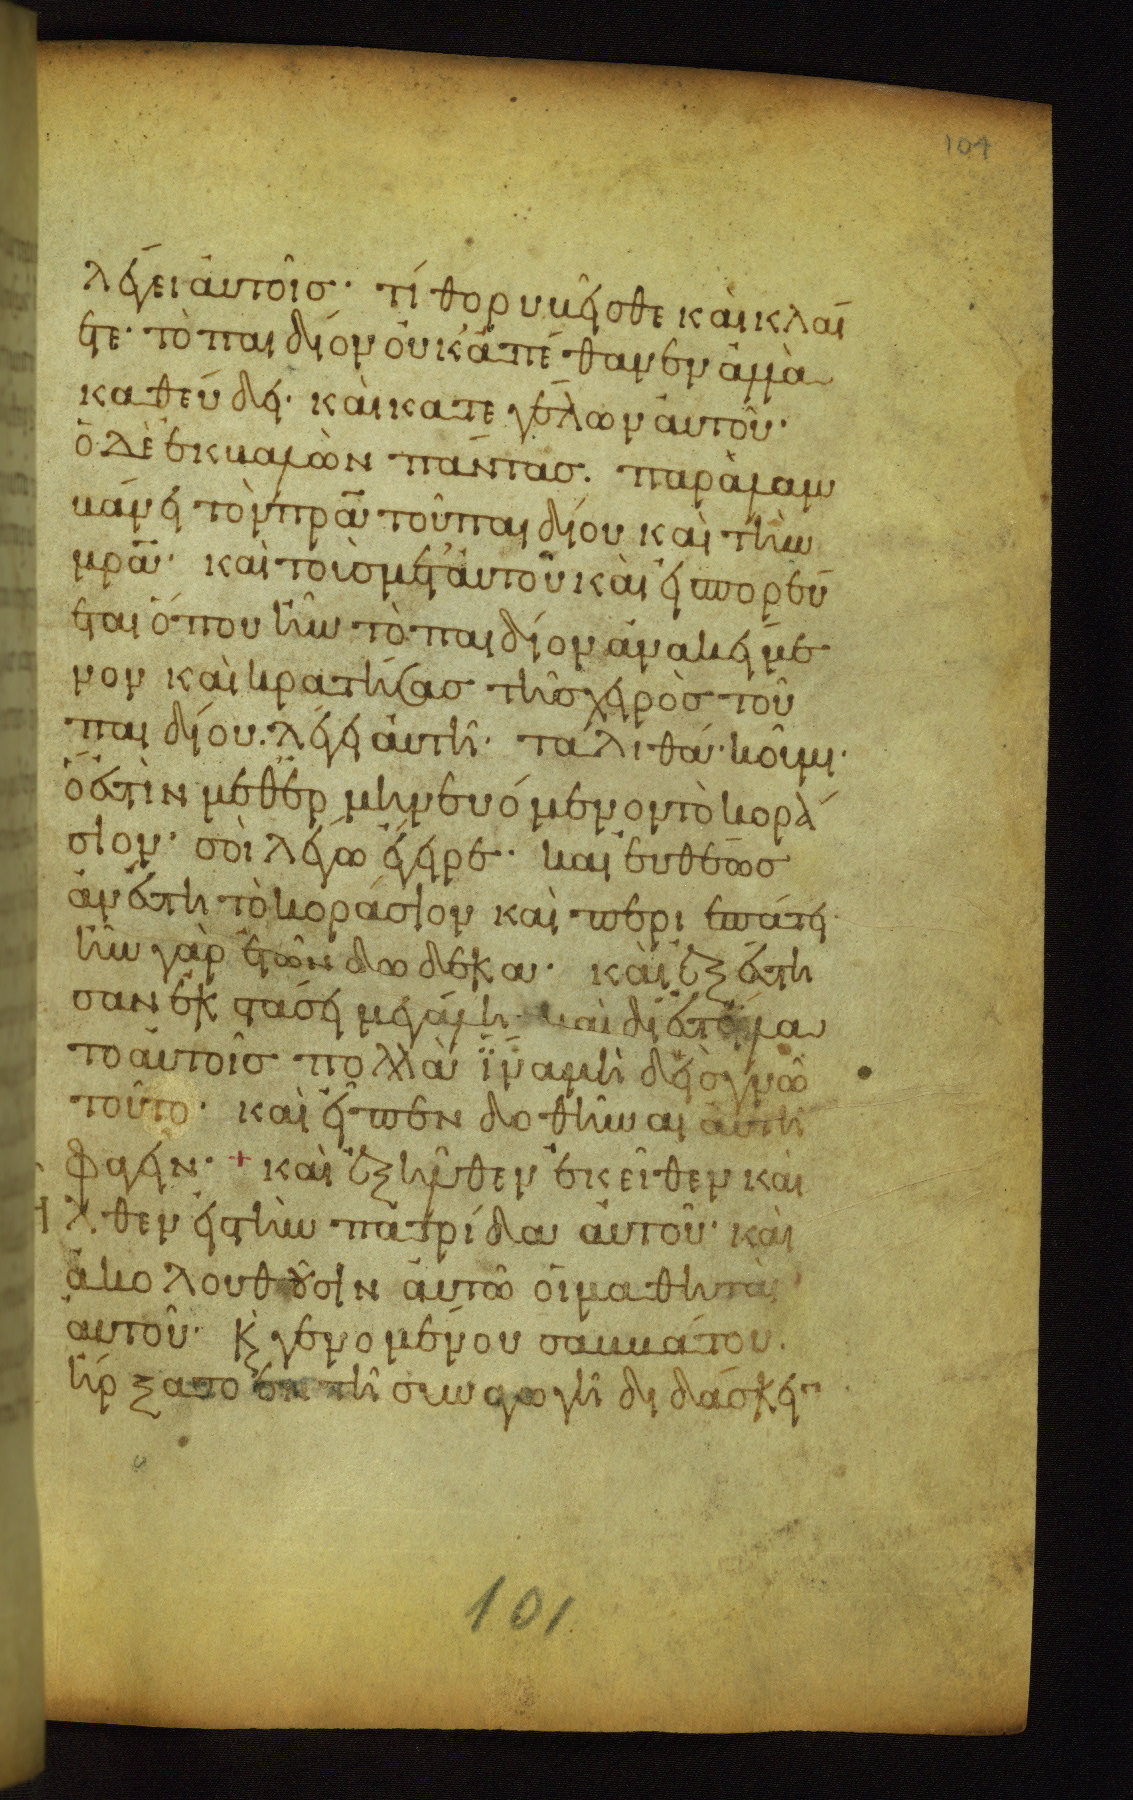 104
λέγει αὐτοῖσ· τί θορυβεῖσθε καὶ κλαί
ετε· τὸ παιδίον οὐκ ἀπέθανεν ἀλλὰ
καθεύδει· καὶ κατεγέλων αὐτοῦ·
ὁ δὲ ἐκβαλὼν πάντασ. παραλαμ
βάνει τὸν πρα τοῦ παιδίου καὶ τὴν
μρα· καὶ τοὺσ μετ αὐτοῦ καὶ εἰσπορεύ
εται ὅπου ἦν τὸ παιδίον ἀνακείμε
νον καὶ κρατήσασ τῆσ χειρὸσ τοῦ
παιδίου. λέγει αὐτῆ· ταλιθά· κοῦμι·
ὅ ἐστιν μεθερμηνευόμενον τὸ κορά
σιον· σοὶ λέγω ἔγειρε· καὶ εὐθέωσ
ἀνέστη τὸ κοράσιον καὶ περιεπάτει·
ἦν γὰρ ἐτῶν δώδεκα· καὶ ἐξέστη
σαν ἐκστάσει μεγάλη· καὶ διεστείλα
το αὐτοῖσ πολλὰ ἵνα μηδεὶσ γνῶ
τοῦτο· καὶ εἶπεν δοθῆναι αὐτῆ
φαγεῖν· + καὶ ἐξῆλθεν ἐκεῖθεν καὶ
ἦλθεν εἰσ τὴν πατρίδα αὐτοῦ· καὶ
ἀκολουθοῦσιν αὐτῶ οἱ μαθηταὶ
αὐτοῦ· κ γενομένου σαββάτου.
ἤρξατο ἐν τῆ συναγωγῆ διδάσκειν
101